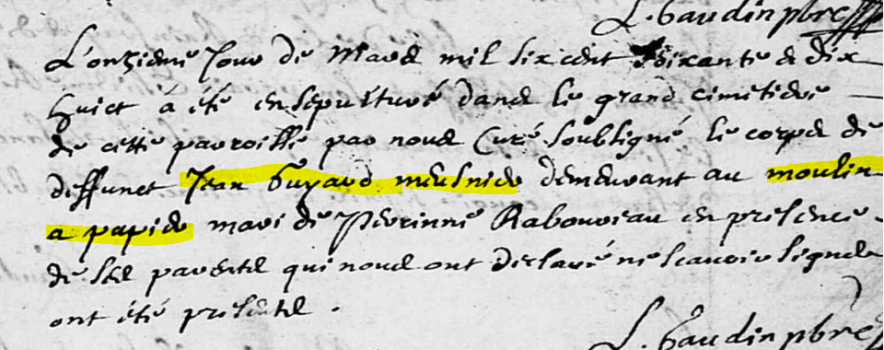 L. Gaudin pbre
L'onzieme Jour de Mars mil six cent soixante & dix
huict a été ensepulturé dans le grand cimetiere
de cette parroisse par nous Curé soubsigné le corps de
deffunct Jean Guyard meusnier demeurant au moulin
a papier mari de Perrinne Raboureau en presence
de ses parents qui nous ont declaré ne scavoir signer
ont été presents .
L. Gaudin pbre